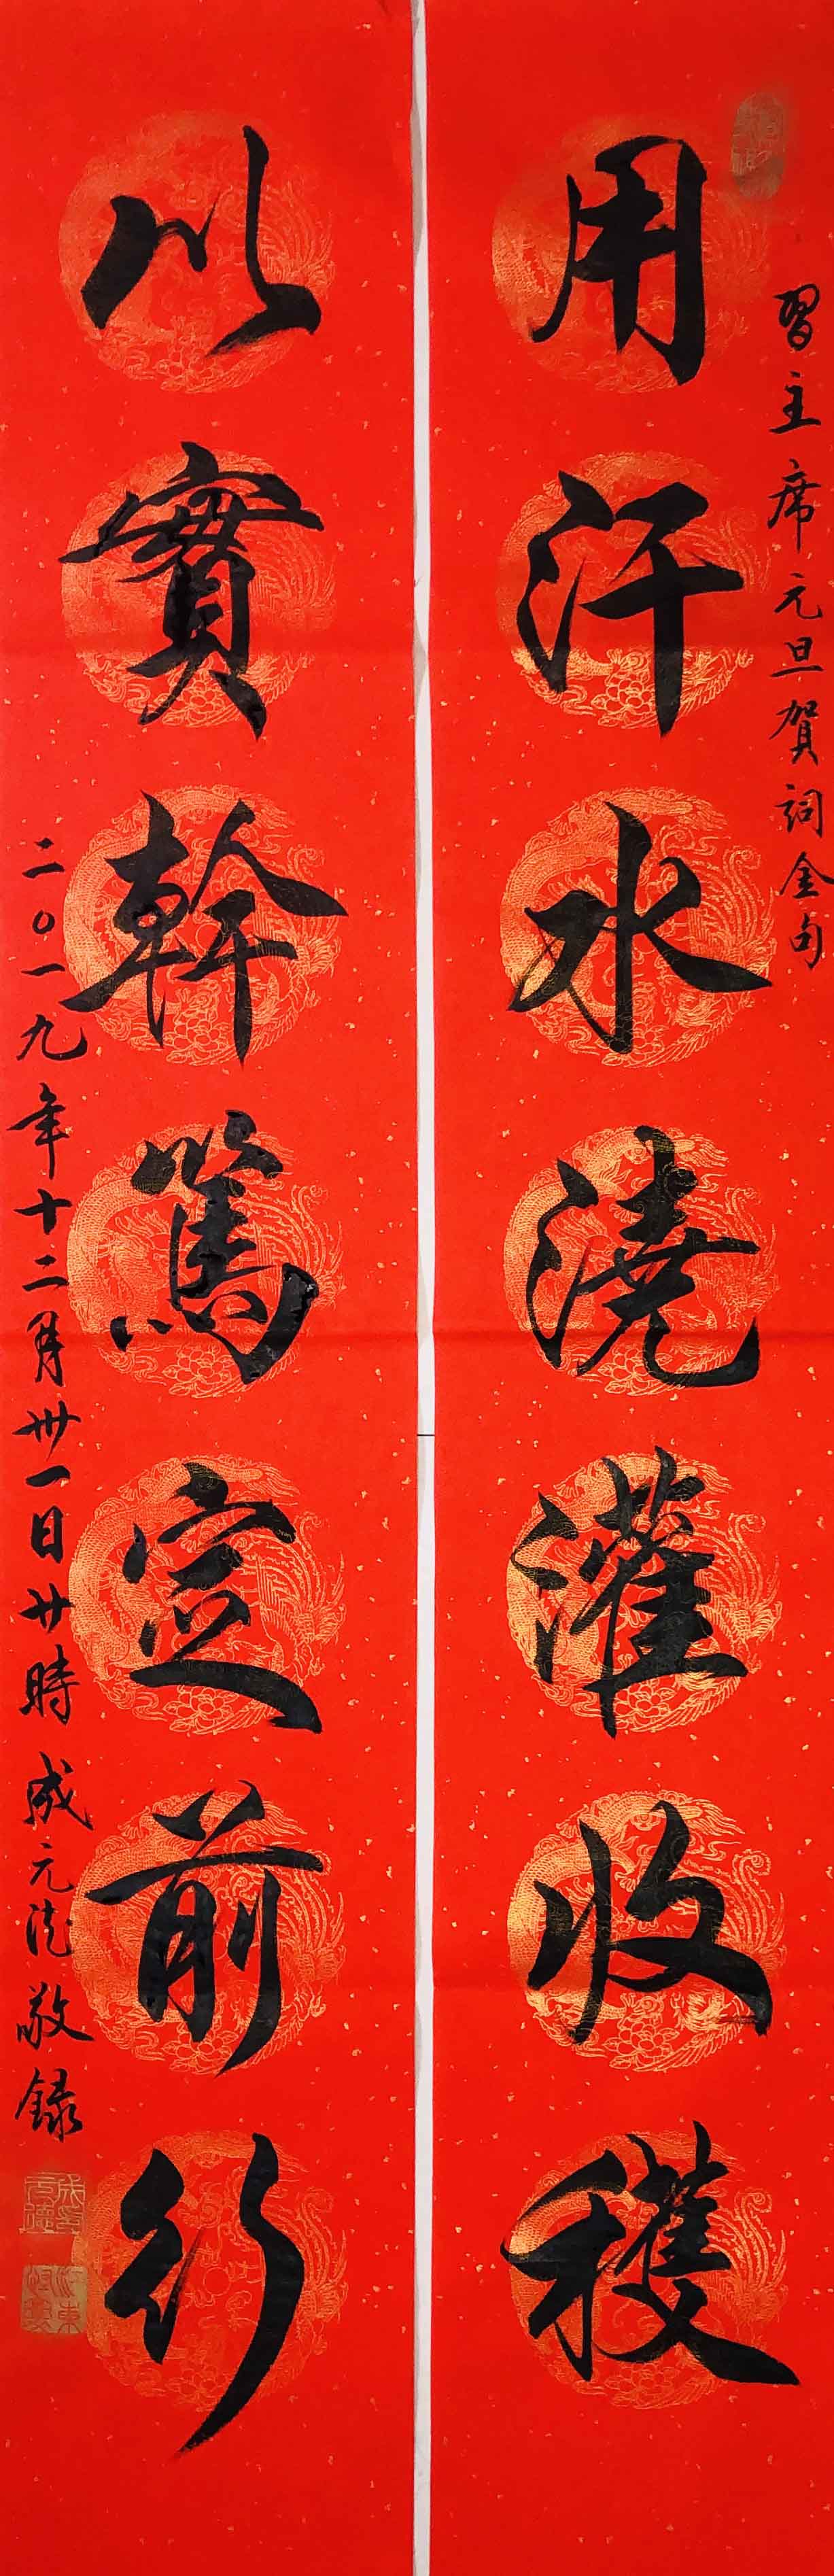 習主席元旦賀詞金句
用汗水澆灌收穫
以實幹篤定前行
二〇一九年十二月卅一日廿時 成元法敬錄